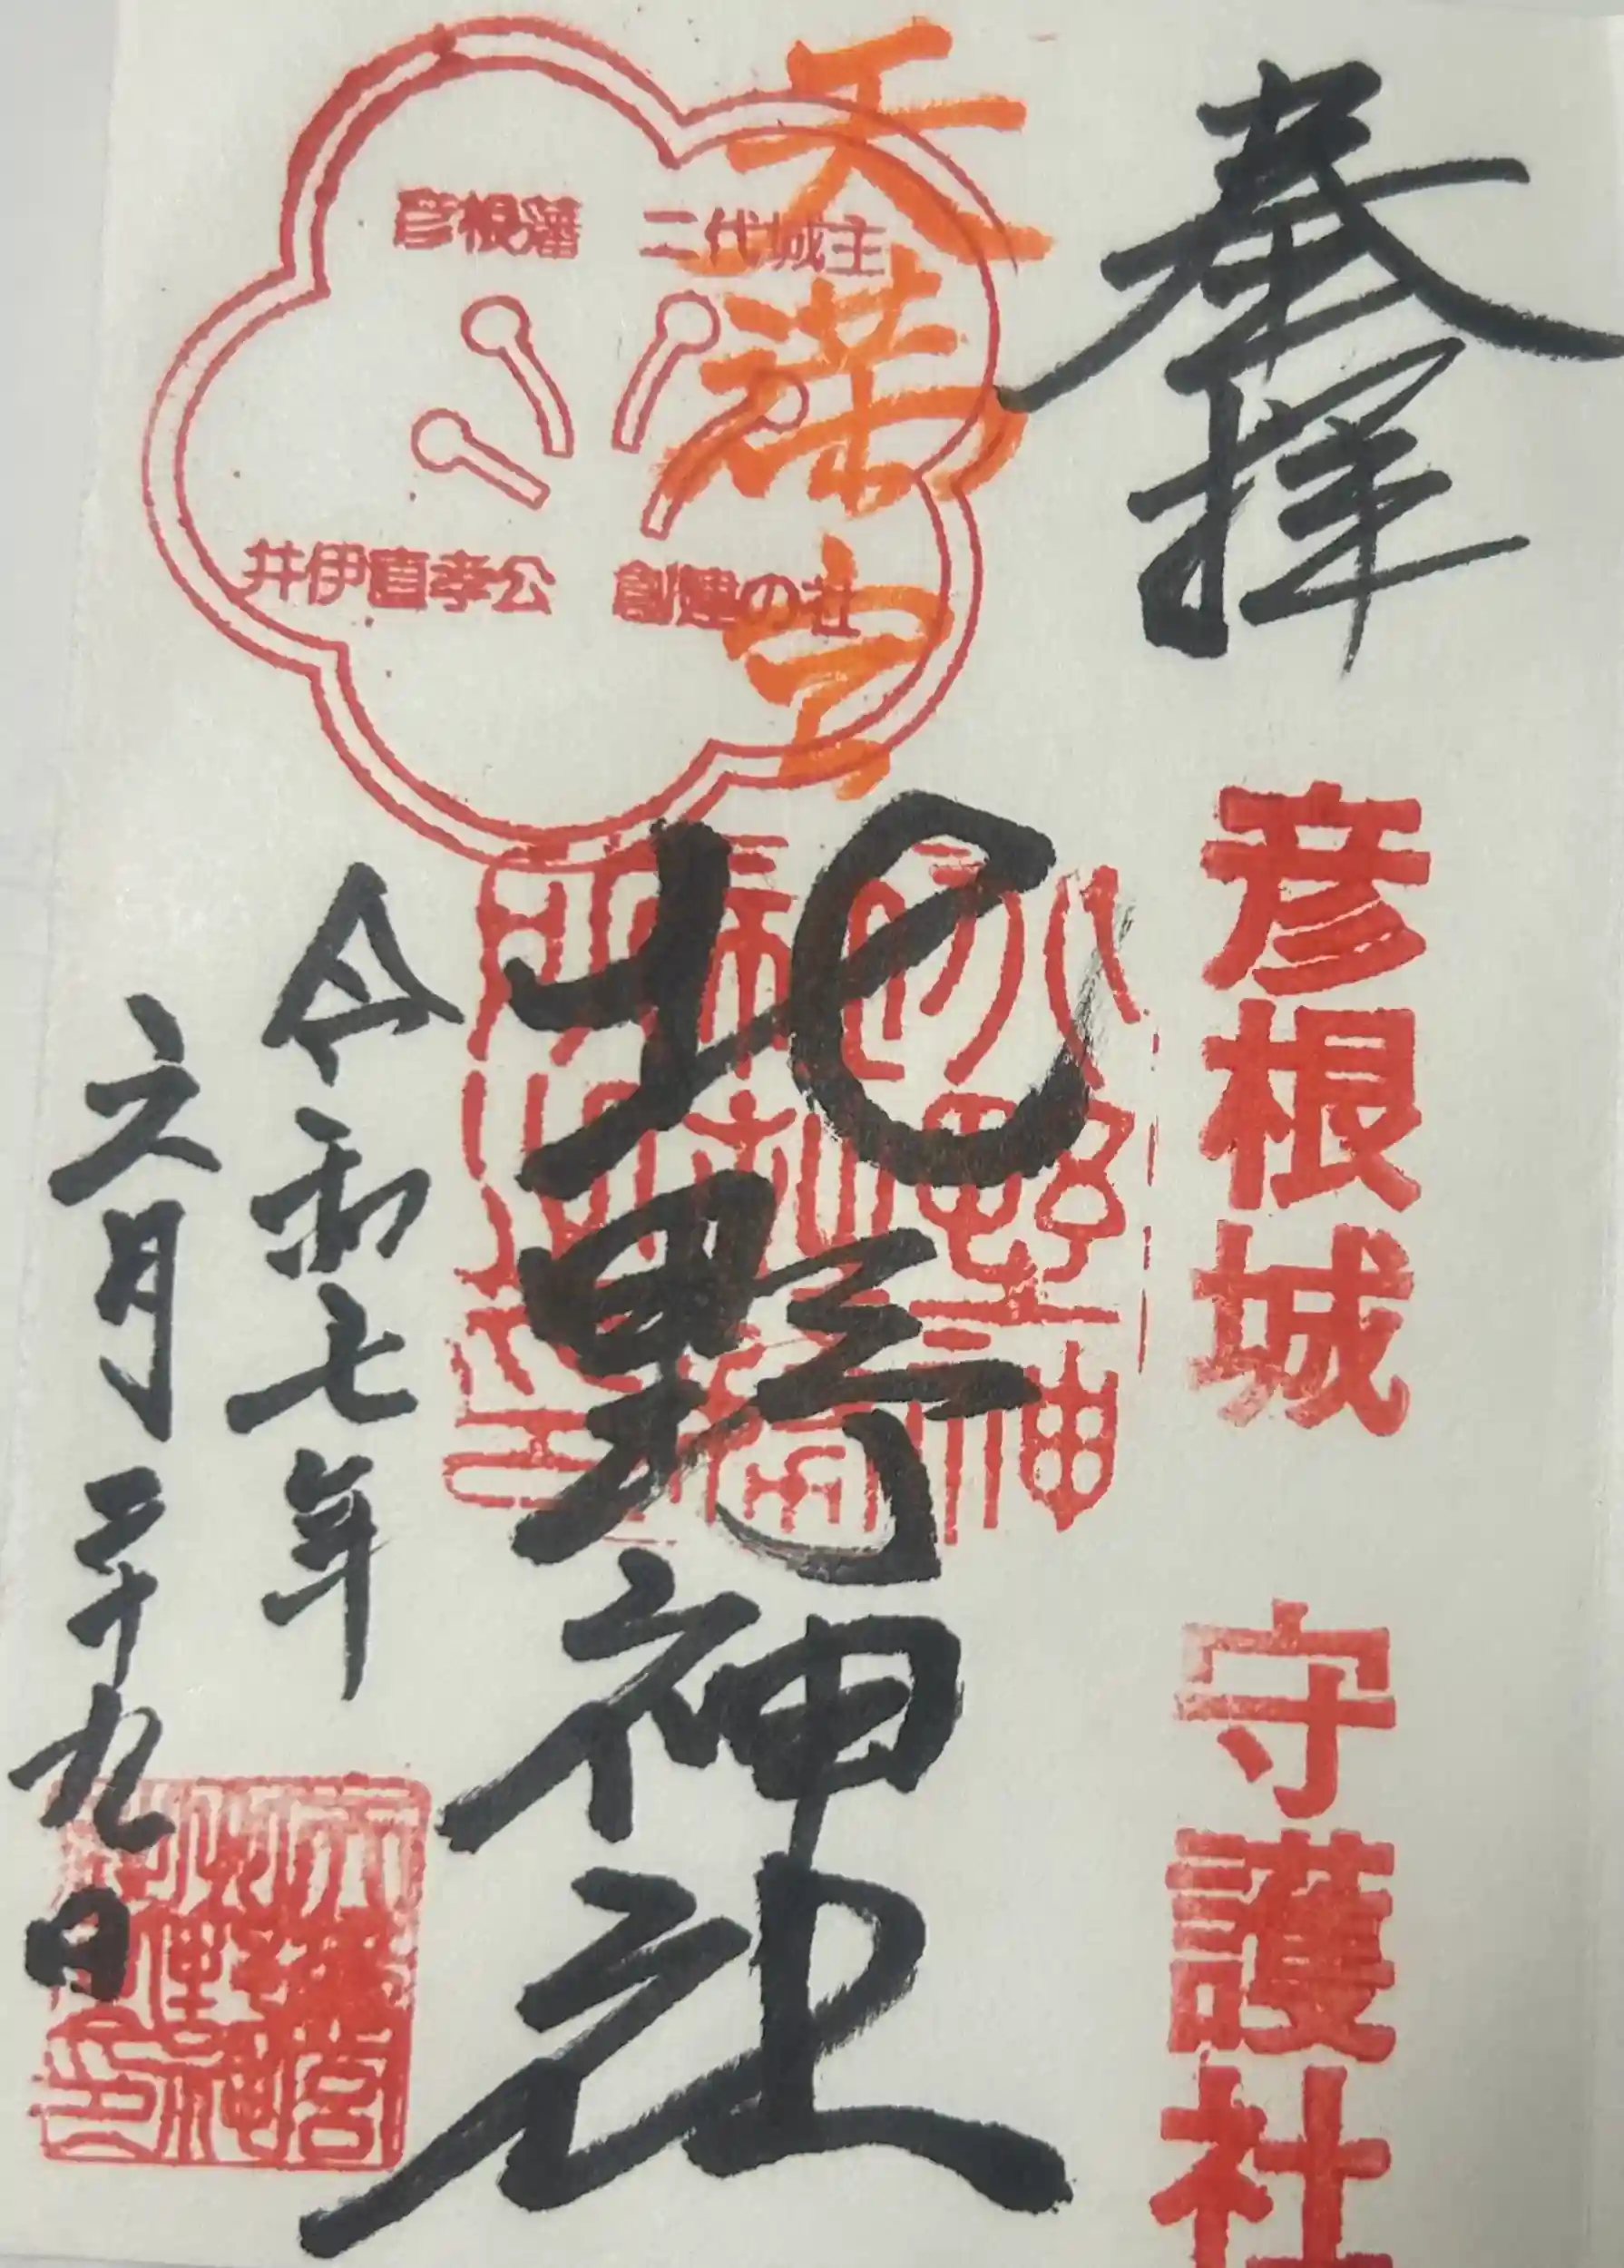 奉拝
彦根城 守護社
天満宮
北野神社
彦根藩 二代城主
井伊直孝公 創建の社
令和七年
六月二十九日